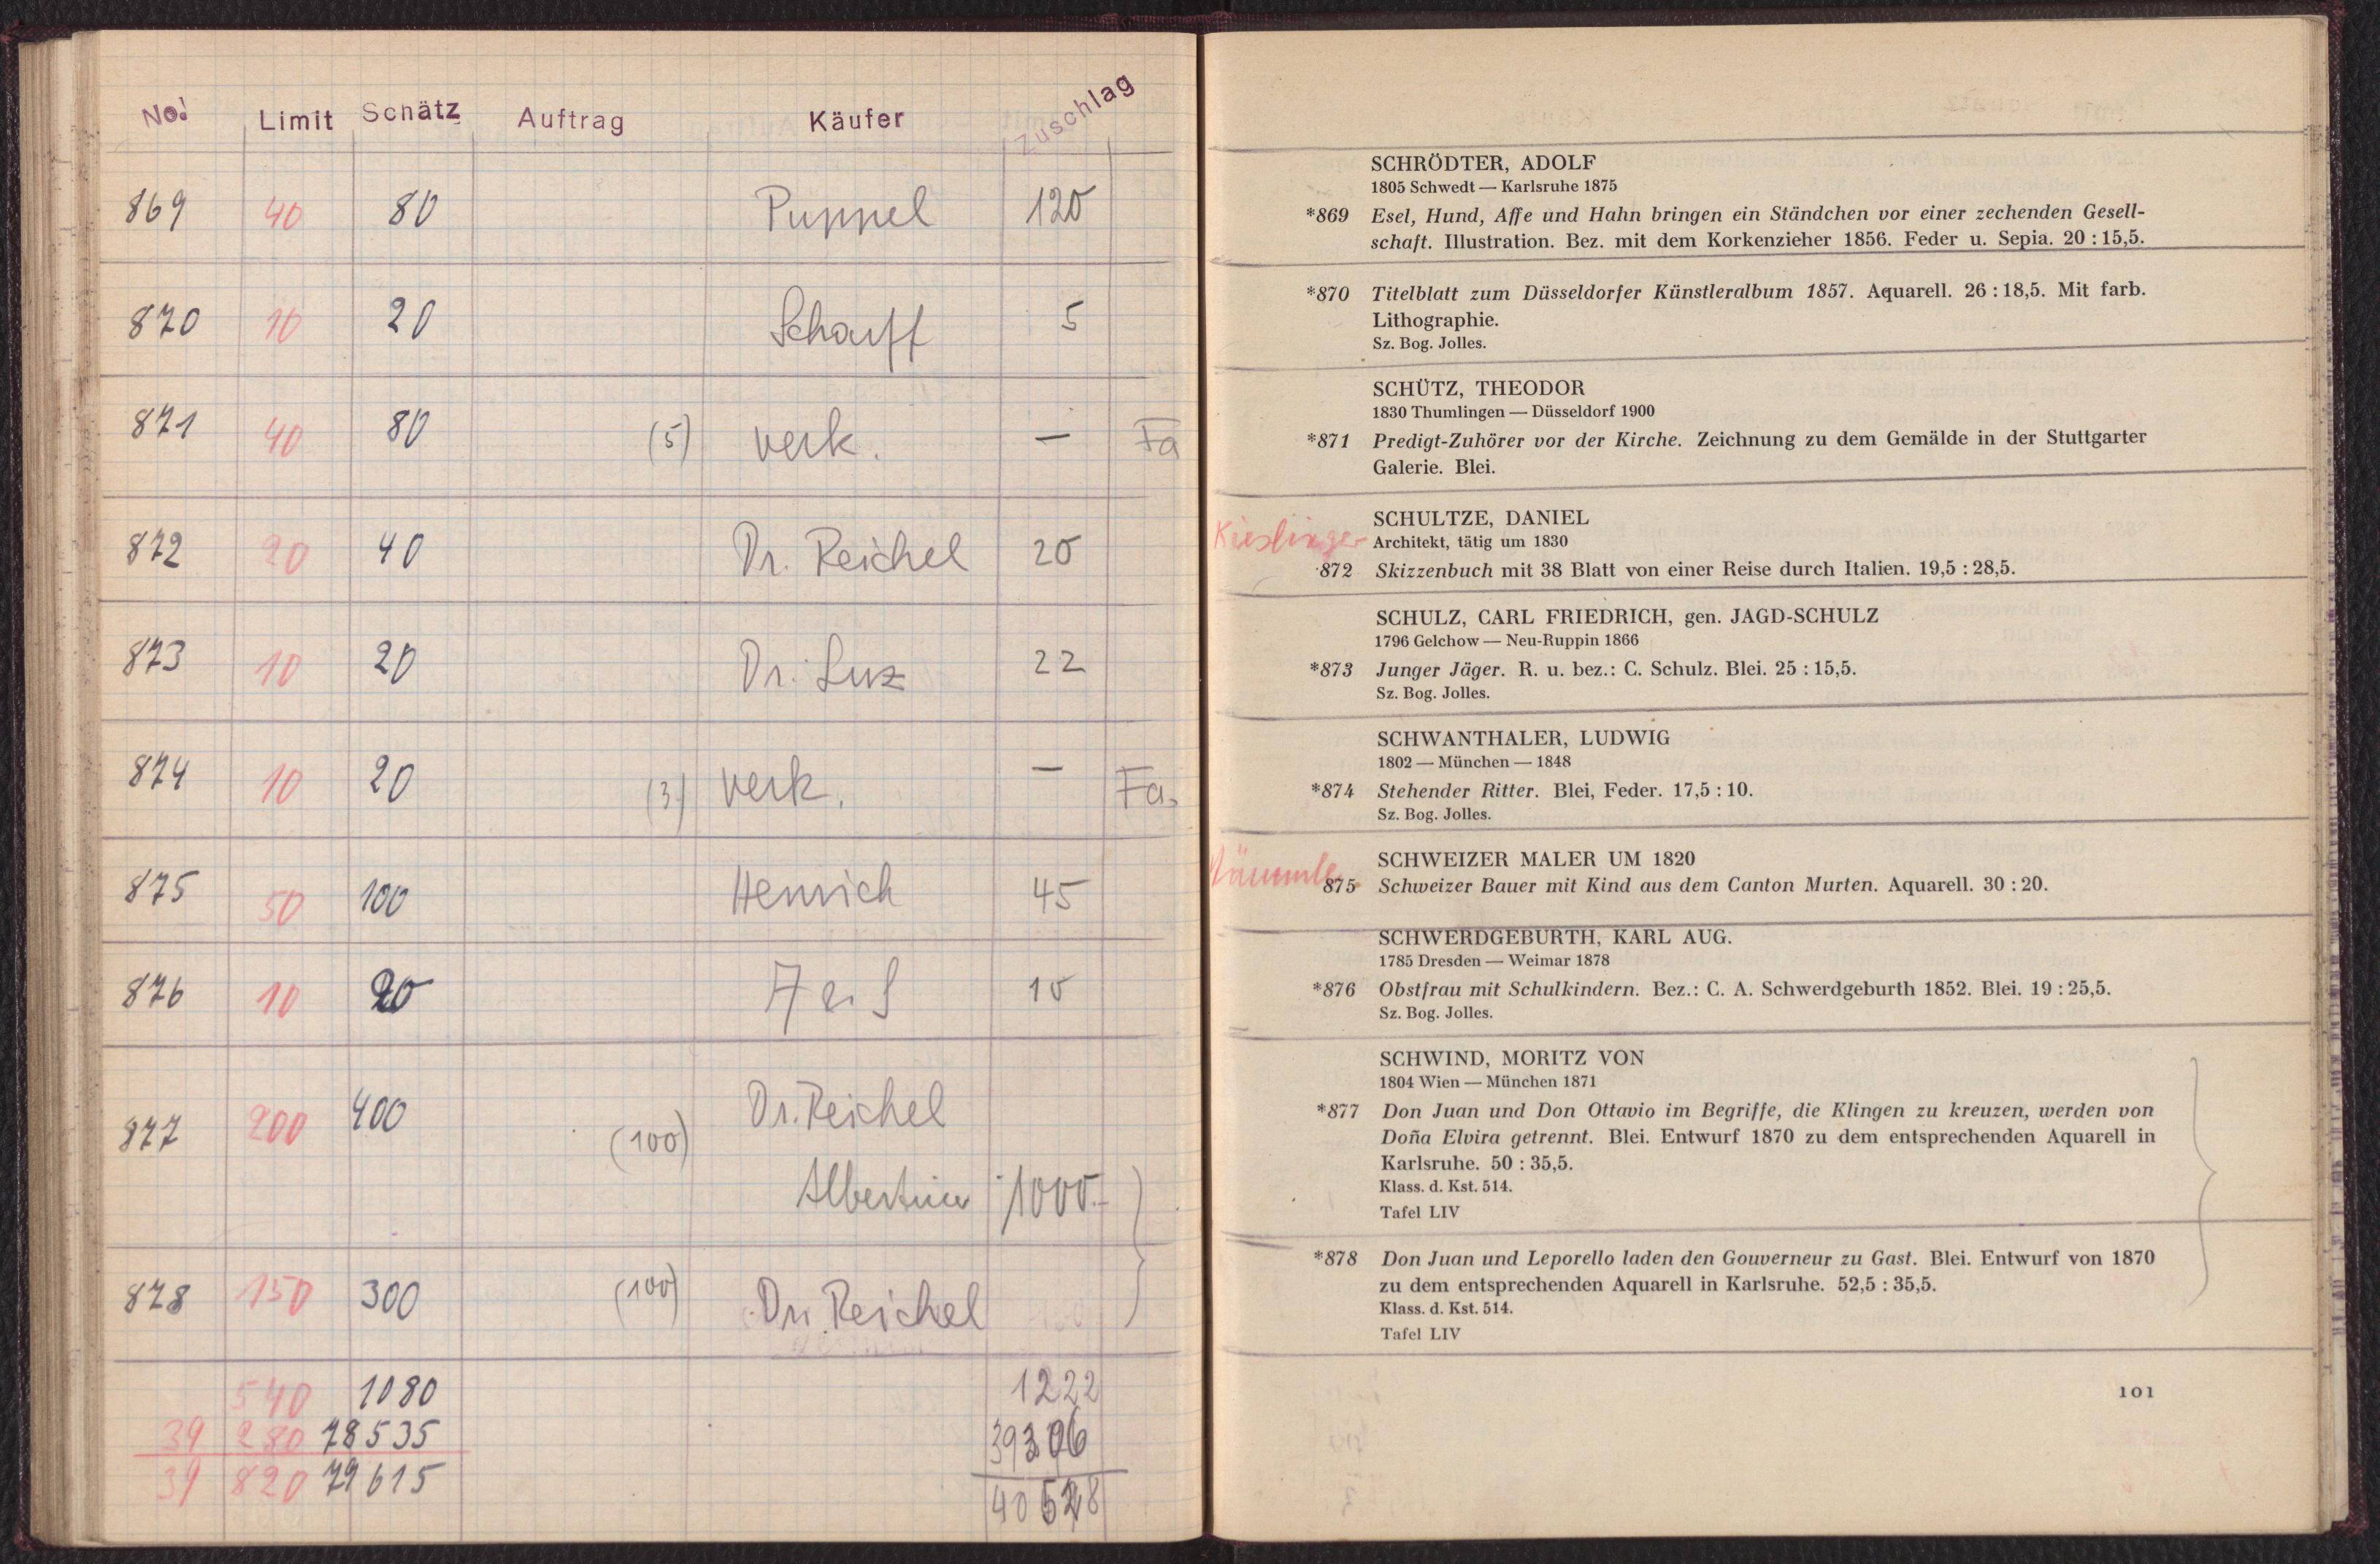 No. Limit Schätz Auftrag Käufer Zuschlag
869 40 80 Puppel 120
870 10 20 Scharff 5
871 40 80 (5) verk. — Fa
872 20 40 Dr. Reichel 20
873 10 20 Dr. Luz 22
874 10 20 (3) verk. — Fa.
875 50 100 Henrich 45
876 10 20 10
877 200 400 (100) Dr. Reichel
Albertina 1000.-
878 150 300 (100) Dr. Reichel
540 1080 1222
39 280 78535 39306
39 820 79615 40528
SCHRÖDTER, ADOLF
1805 Schwedt — Karlsruhe 1875
*869 Esel, Hund, Affe und Hahn bringen ein Ständchen vor einer zechenden Gesell-
schaft. Illustration. Bez. mit dem Korkenzieher 1856. Feder u. Sepia. 20 : 15,5.
*870 Titelblatt zum Düsseldorfer Künstleralbum 1857. Aquarell. 26 : 18,5. Mit farb.
Lithographie.
Sz. Bog. Jolles.
SCHÜTZ, THEODOR
1830 Thumlingen — Düsseldorf 1900
*871 Predigt-Zuhörer vor der Kirche. Zeichnung zu dem Gemälde in der Stuttgarter
Galerie. Blei.
SCHULTZE, DANIEL
Kieslinger Architekt, tätig um 1830
872 Skizzenbuch mit 38 Blatt von einer Reise durch Italien. 19,5 : 28,5.
SCHULZ, CARL FRIEDRICH, gen. JAGD-SCHULZ
1796 Gelchow — Neu-Ruppin 1866
*873 Junger Jäger. R. u. bez.: C. Schulz. Blei. 25 : 15,5.
Sz. Bog. Jolles.
SCHWANTHALER, LUDWIG
1802 — München — 1848
*874 Stehender Ritter. Blei, Feder. 17,5 : 10.
Sz. Bog. Jolles.
SCHWEIZER MALER UM 1820
875 Schweizer Bauer mit Kind aus dem Canton Murten. Aquarell. 30 : 20.
SCHWERDGEBURTH, KARL AUG.
1785 Dresden — Weimar 1878
*876 Obstfrau mit Schulkindern. Bez.: C. A. Schwerdgeburth 1852. Blei. 19 : 25,5.
Sz. Bog. Jolles.
SCHWIND, MORITZ VON
1804 Wien — München 1871
*877 Don Juan und Don Ottavio im Begriffe, die Klingen zu kreuzen, werden von
Doña Elvira getrennt. Blei. Entwurf 1870 zu dem entsprechenden Aquarell in
Karlsruhe. 50 : 35,5.
Klass. d. Kst. 514.
Tafel LIV
*878 Don Juan und Leporello laden den Gouverneur zu Gast. Blei. Entwurf von 1870
zu dem entsprechenden Aquarell in Karlsruhe. 52,5 : 35,5.
Klass. d. Kst. 514.
Tafel LIV
101